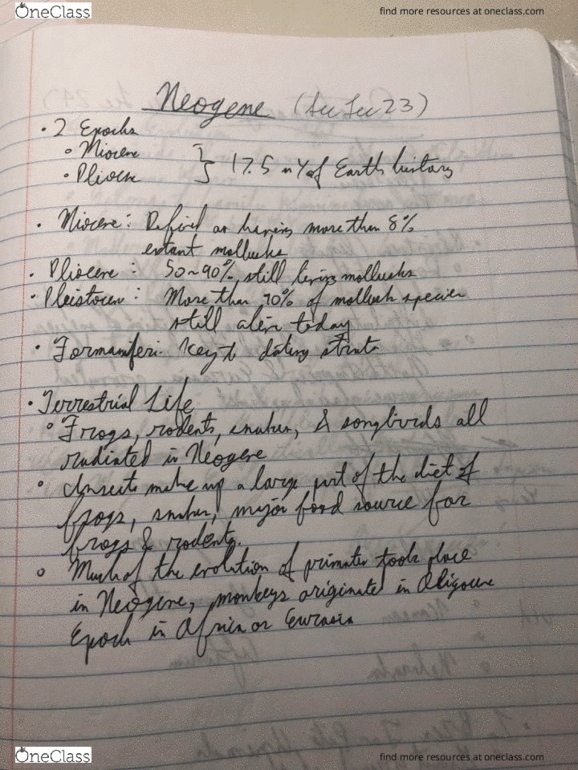 OneClass
find more resources at oneclass.com
Neogene (Lec 23)
• 2 Epochs
• Miocene
• Pliocene
} 17.5 mY of Earth history
• Miocene: Defined as having more than 8%
extant mollusks
• Pliocene: 50~90% still living mollusks
• Pleistocene: More than 90% of mollusk species
still alive today
• Formaniferi: key to dating strata
• Terrestrial Life
• Frogs, rodents, snakes, & songbirds all
radiated in Neogene
• Insects make up a large part of the diet of
frogs, snakes, major food source for
frogs & rodents.
• Much of the evolution of primates took place
in Neogene, monkeys originated in Oligocene
Epoch in Africa or Eurasia
OneClass
find more resources at oneclass.com